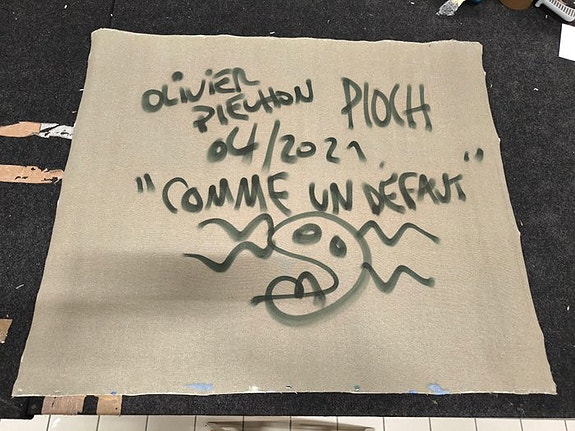 OLIVIER
PIECHON PIOCH
04/2021
"COMME UN DÉFAUT"